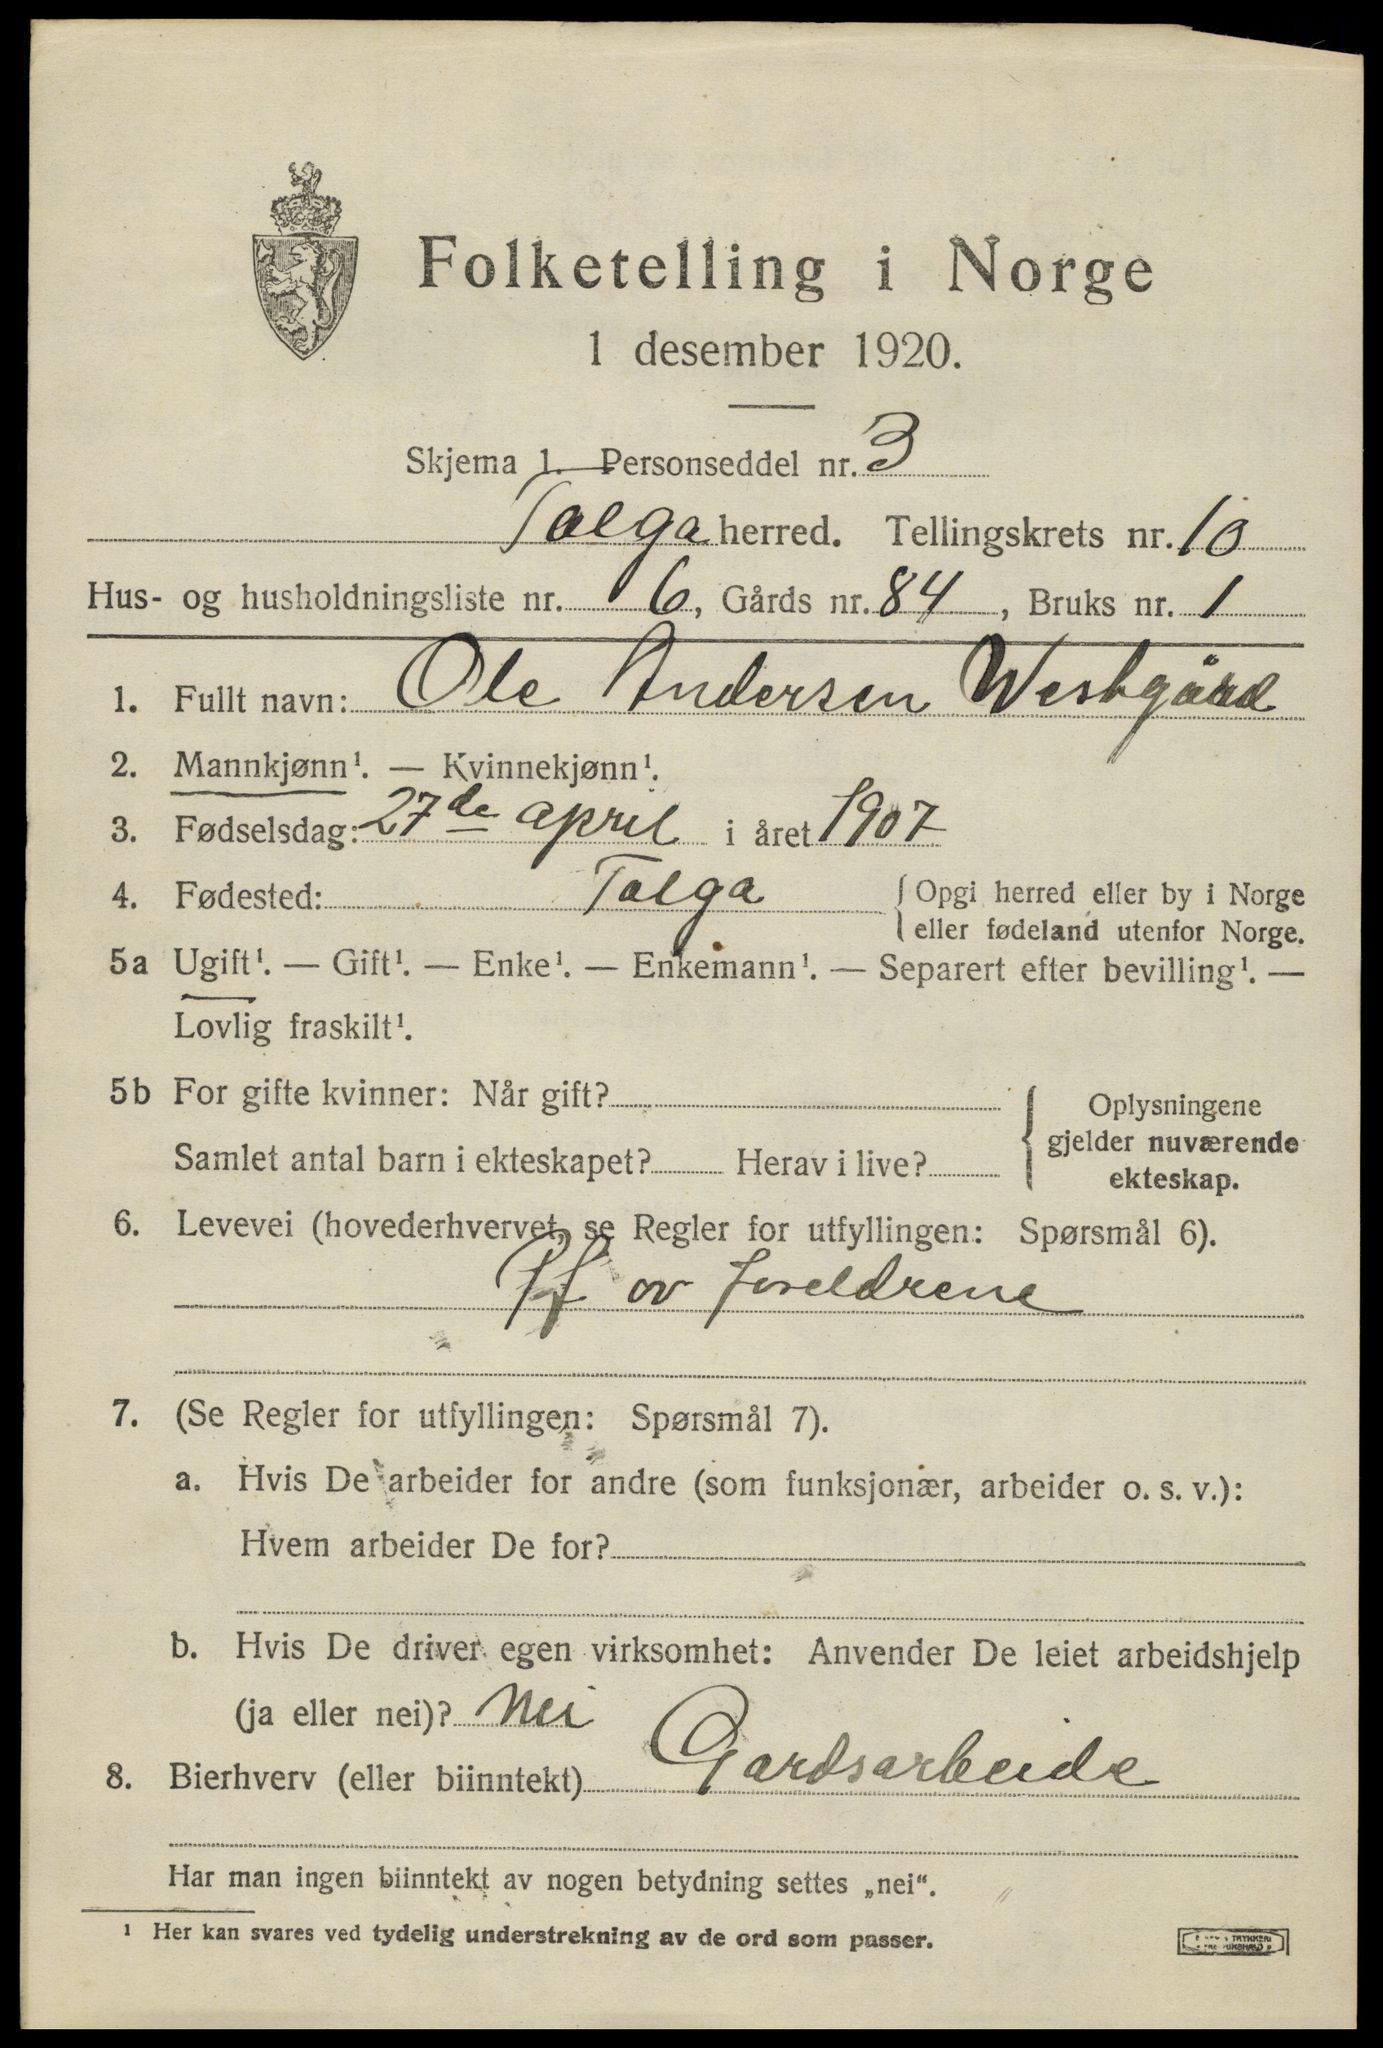 Folketelling i Norge
1 desember 1920.
Skjema 1. Personseddel nr. 3
Tolga herred. Tellingskrets nr. 10
Hus- og husholdningsliste nr. 6, Gårds nr. 84, Bruks nr. 1
1. Fullt navn: Ole Andersen Westgård
2. Mannkjønn¹. — Kvinnekjønn¹.
3. Fødselsdag: 27de april i året 1907
4. Fødested: Tolga { Opgi herred eller by i Norge
eller fødeland utenfor Norge.
5a Ugift¹. — Gift¹. — Enke¹. — Enkemann¹. — Separert efter bevilling¹. —
Lovlig fraskilt¹.
5b For gifte kvinner: Når gift? { Oplysningene
gjelder nuværende
Samlet antal barn i ekteskapet? Herav i live?
ekteskap.
6. Levevei (hovederhvervet, se Regler for utfyllingen: Spørsmål 6).
ff ov foreldrene
7. (Se Regler for utfyllingen: Spørsmål 7).
a. Hvis De arbeider for andre (som funksjonær, arbeider o. s. v.):
Hvem arbeider De for?
b. Hvis De driver egen virksomhet: Anvender De leiet arbeidshjelp
(ja eller nei)? Nei
8. Bierhverv (eller biinntekt) Gardsarbeide
Har man ingen biinntekt av nogen betydning settes „nei“.
¹ Her kan svares ved tydelig understrekning av de ord som passer.